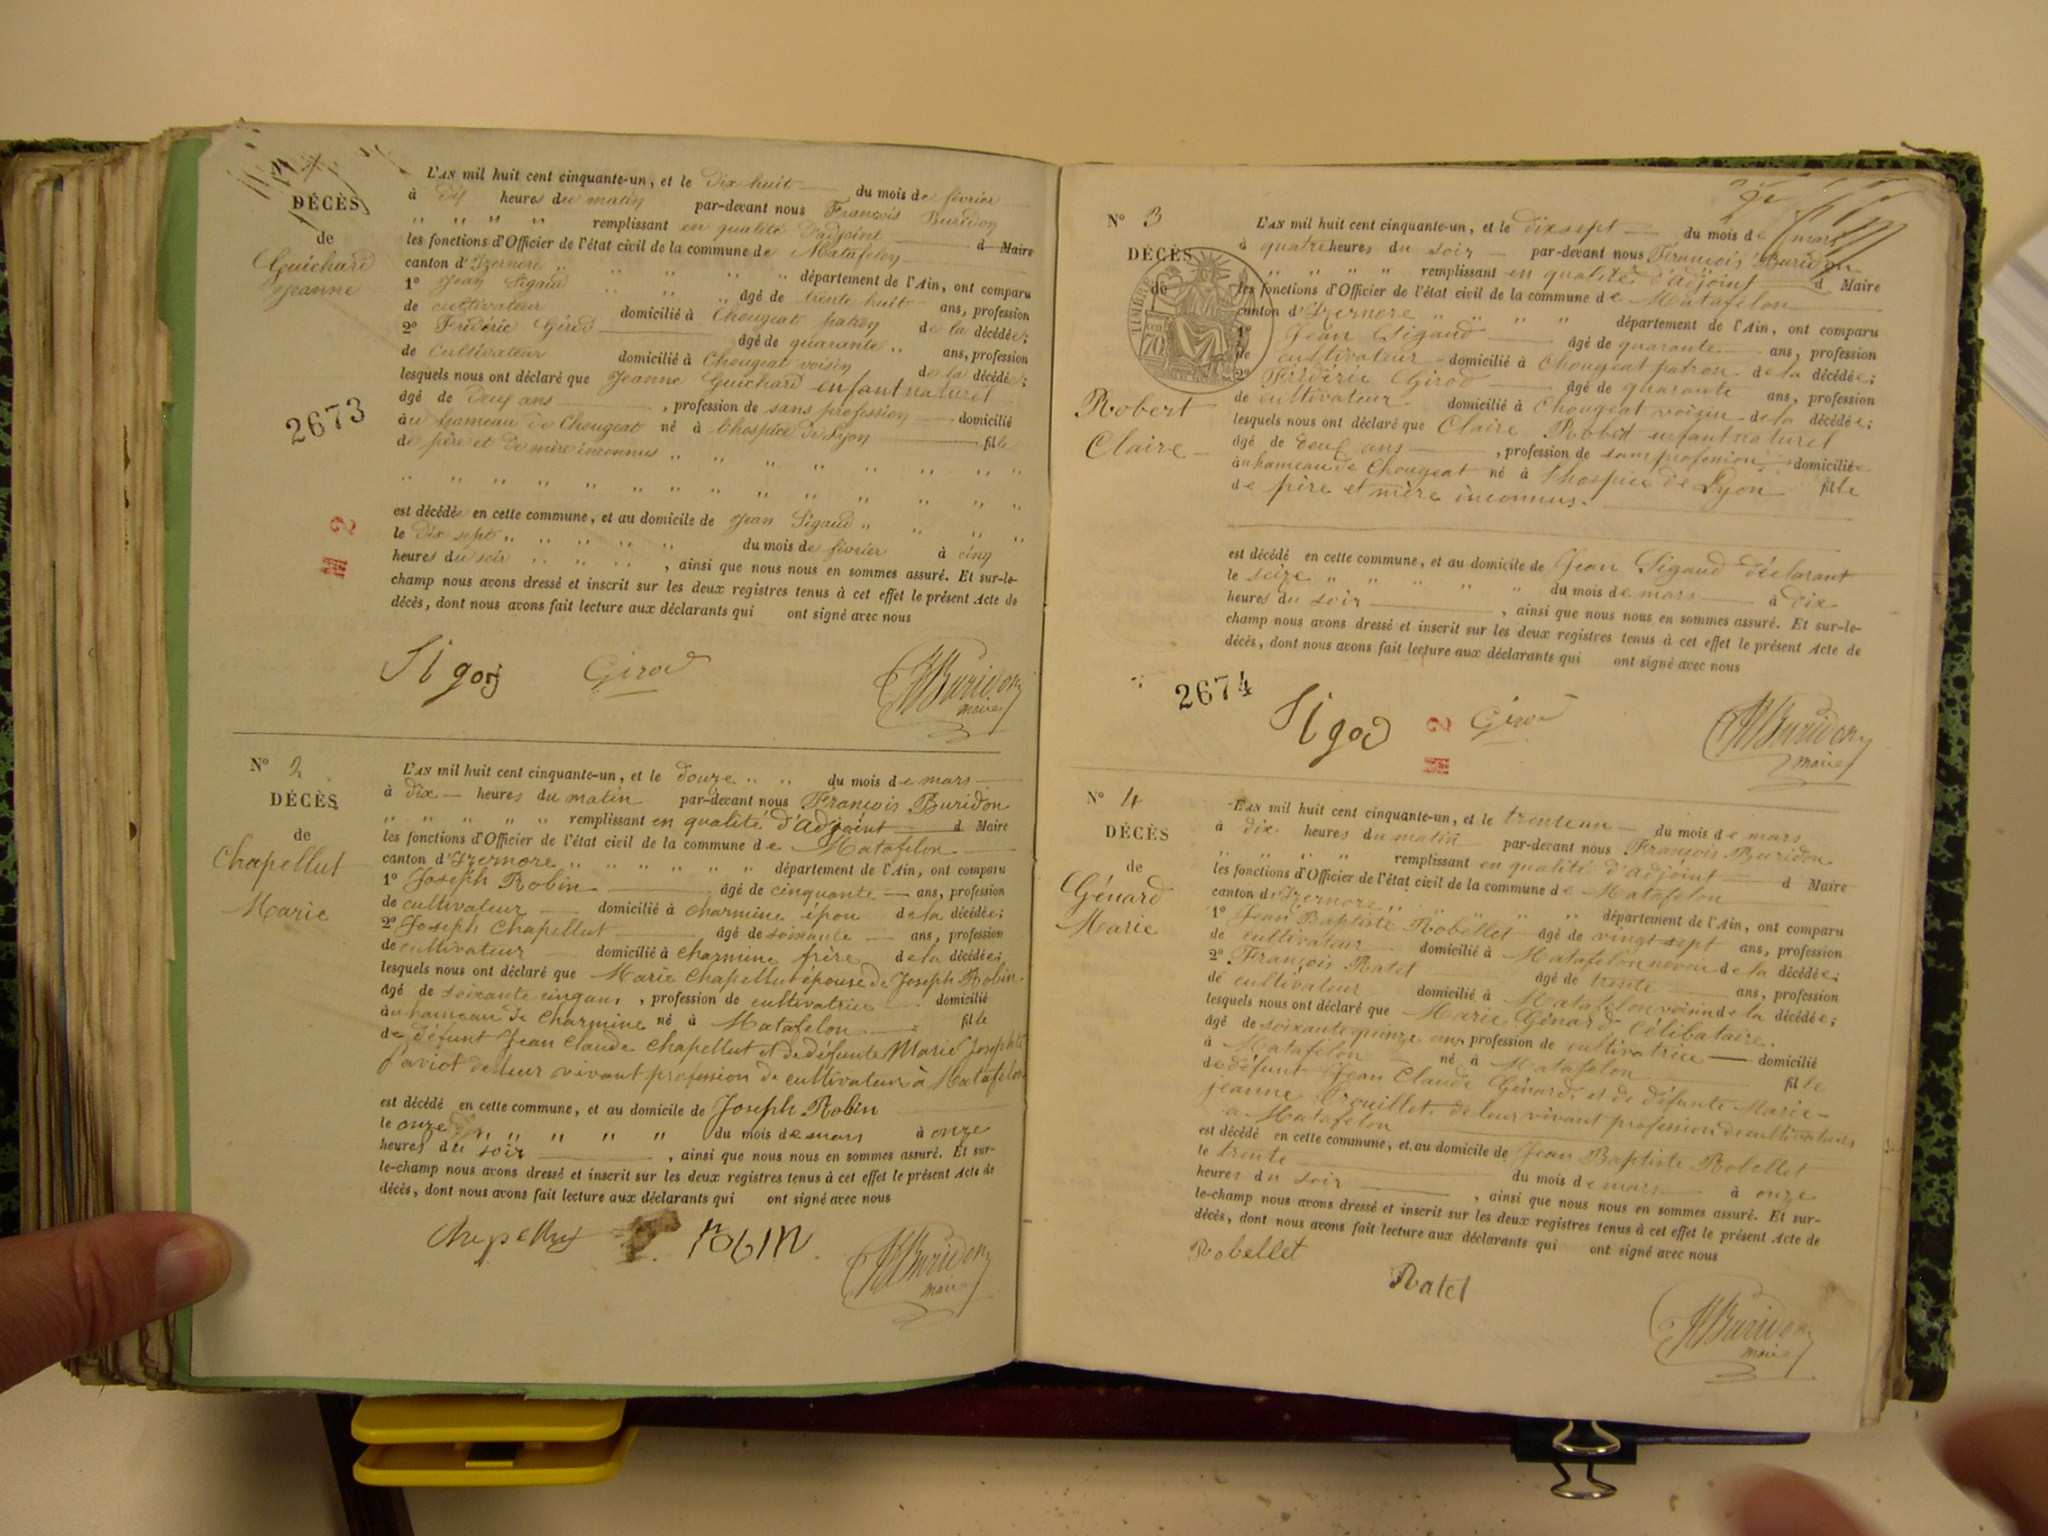 DÉCÈS
de
Guichard
Jeanne
L'AN mil huit cent cinquante-un, et le dix huit du mois de février
à dix heures du matin par-devant nous François Buridon
" " " " remplissant en qualité d'adjoint d Maire
les fonctions d'Officier de l'état civil de la commune de Matafelon
canton d'Izernore " " " " " département de l'Ain, ont comparu
1° Jean Sigaud " " " âgé de trente huit ans, profession
de cultivateur domicilié à Chougeat patron de la décédée;
2° Frédéric Girod âgé de quarante " ans, profession
de cultivateur domicilié à Chougeat voisin de la décédée;
lesquels nous ont déclaré que Jeanne Guichard enfant naturel
âgé de deux ans , profession de sans profession domicilié
au hameau de Chougeat né à l'hospice de Lyon fille
de père et de mère inconnus " " " " " " " "
2673
est décédée en cette commune, et au domicile de Jean Sigaud " " " "
le dix sept " " " " " du mois de février à cinq
heures du soir " " " " , ainsi que nous nous en sommes assuré. Et sur-le-
champ nous avons dressé et inscrit sur les deux registres tenus à cet effet le présent Acte de
décès, dont nous avons fait lecture aux déclarants qui ont signé avec nous
M 2
Girod
Buridon
maire
N° 2
DÉCÈS
de
Chapellut
Marie
L'AN mil huit cent cinquante-un, et le douze " " du mois de mars
à dix heures du matin par-devant nous François Buridon
" " " " " remplissant en qualité d'adjoint d Maire
les fonctions d'Officier de l'état civil de la commune de Matafelon
canton d'Izernore " " " " " " département de l'Ain, ont comparu
1° Joseph Robin âgé de cinquante ans, profession
de cultivateur domicilié à charmine épou de la décédée;
2° Joseph Chapellut âgé de soixante ans, profession
de cultivateur domicilié à charmine frère de la décédée;
lesquels nous ont déclaré que Marie Chapellut épouse de Joseph Robin
âgé de soixante cinq ans, profession de cultivatrice domicilié
au hameau de Charmine né à Matafelon fille
de défunt Jean Claude Chapellut et de défunte Marie Josephte
Paviot de leur vivant profession de cultivateur à Matafelon
est décédé en cette commune, et au domicile de Joseph Robin
le onze " " " " " du mois de mars à onze
heures du soir , ainsi que nous nous en sommes assuré. Et sur-
le-champ nous avons dressé et inscrit sur les deux registres tenus à cet effet le présent Acte de
décès, dont nous avons fait lecture aux déclarants qui ont signé avec nous
RobIN
Buridon
maire
N° 3
DÉCÈS
de
Robert
Claire
TIMBRE
70
L'AN mil huit cent cinquante-un, et le dix sept du mois de mars
à quatre heures du soir par-devant nous François Buridon
" " " " remplissant en qualité d'adjoint d Maire
les fonctions d'Officier de l'état civil de la commune de Matafelon
canton d'Izernore " " " " département de l'Ain, ont comparu
1° Jean Sigaud âgé de quarante ans, profession
de cultivateur domicilié à Chougeat patron de la décédée;
2° Frédéric Girod âgé de quarante ans, profession
de cultivateur domicilié à Chougeat voisin de la décédée;
lesquels nous ont déclaré que Claire Robert enfant naturel
âgé de deux ans , profession de sans profession domiciliée
au hameau de Chougeat né à l'hospice de Lyon fille
de père et mère inconnus.
est décédé en cette commune, et au domicile de Jean Sigaud déclarant
le seize " " " " " du mois de mars à dix
heures du soir , ainsi que nous nous en sommes assuré. Et sur-le-
champ nous avons dressé et inscrit sur les deux registres tenus à cet effet le présent Acte de
décès, dont nous avons fait lecture aux déclarants qui ont signé avec nous
2674
M 2
Sigod
Girod
Buridon
maire
N° 4
DÉCÈS
de
Génard
Marie
L'AN mil huit cent cinquante-un, et le trente un du mois de mars
à dix heures du matin par-devant nous François Buridon
" " " " remplissant en qualité d'adjoint d Maire
les fonctions d'Officier de l'état civil de la commune de Matafelon
canton d'Izernore " " " " département de l'Ain, ont comparu
1° Jean Baptiste Robellet âgé de vingt sept ans, profession
de cultivateur domicilié à Matafelon neveu de la décédée;
2° François Ratel âgé de trente ans, profession
de cultivateur domicilié à Matafelon voisin de la décédée;
lesquels nous ont déclaré que Marie Génard Célibataire.
âgé de soixante quinze ans, profession de cultivatrice domicilié
à Matafelon né à Matafelon fille
de défunt Jean Claude Génard, et de défunte Marie-
jeanne Trouillet, de leur vivant profession de cultivateurs
à Matafelon
est décédé en cette commune, et au domicile de Jean Baptiste Robellet
le trente du mois de mars à onze
heures du soir , ainsi que nous nous en sommes assuré. Et sur-
le-champ nous avons dressé et inscrit sur les deux registres tenus à cet effet le présent Acte de
décès, dont nous avons fait lecture aux déclarants qui ont signé avec nous
Robellet
Ratel
Buridon
maire